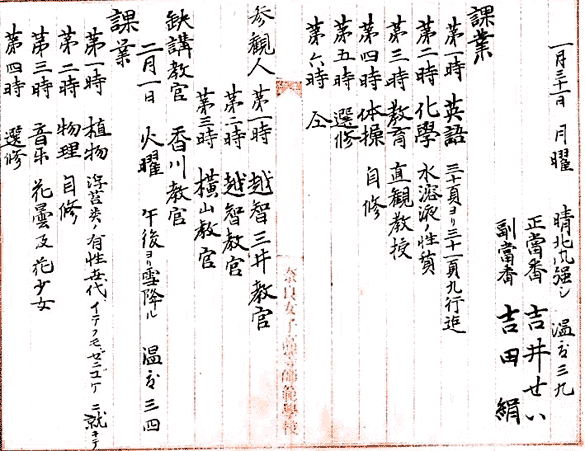 一月三十一日 月曜 晴北風强シ 温度三九
正當番 吉井せい
副當番 吉田絹
課業
第一時 英語 三十頁ヨリ三十一頁九行迄
第二時 化學 水溶液ノ性質
第三時 教育 直観教授
第四時 体操 自修
第五時 選修
第六時 仝
参観人 第一時 越智三井教官
第二時 越智教官
第三時 横山教官
缺講教官 香川教官
二月一日 火曜 午後ヨリ雪降ル 温度三四
課業
第一時 植物 ノ有性世代 イテフモ、ゼニゴケ ニ就キテ
第二時 物理 自修
第三時 音乐 花曇及花少女
第四時 選修
奈良女子高等師範學校